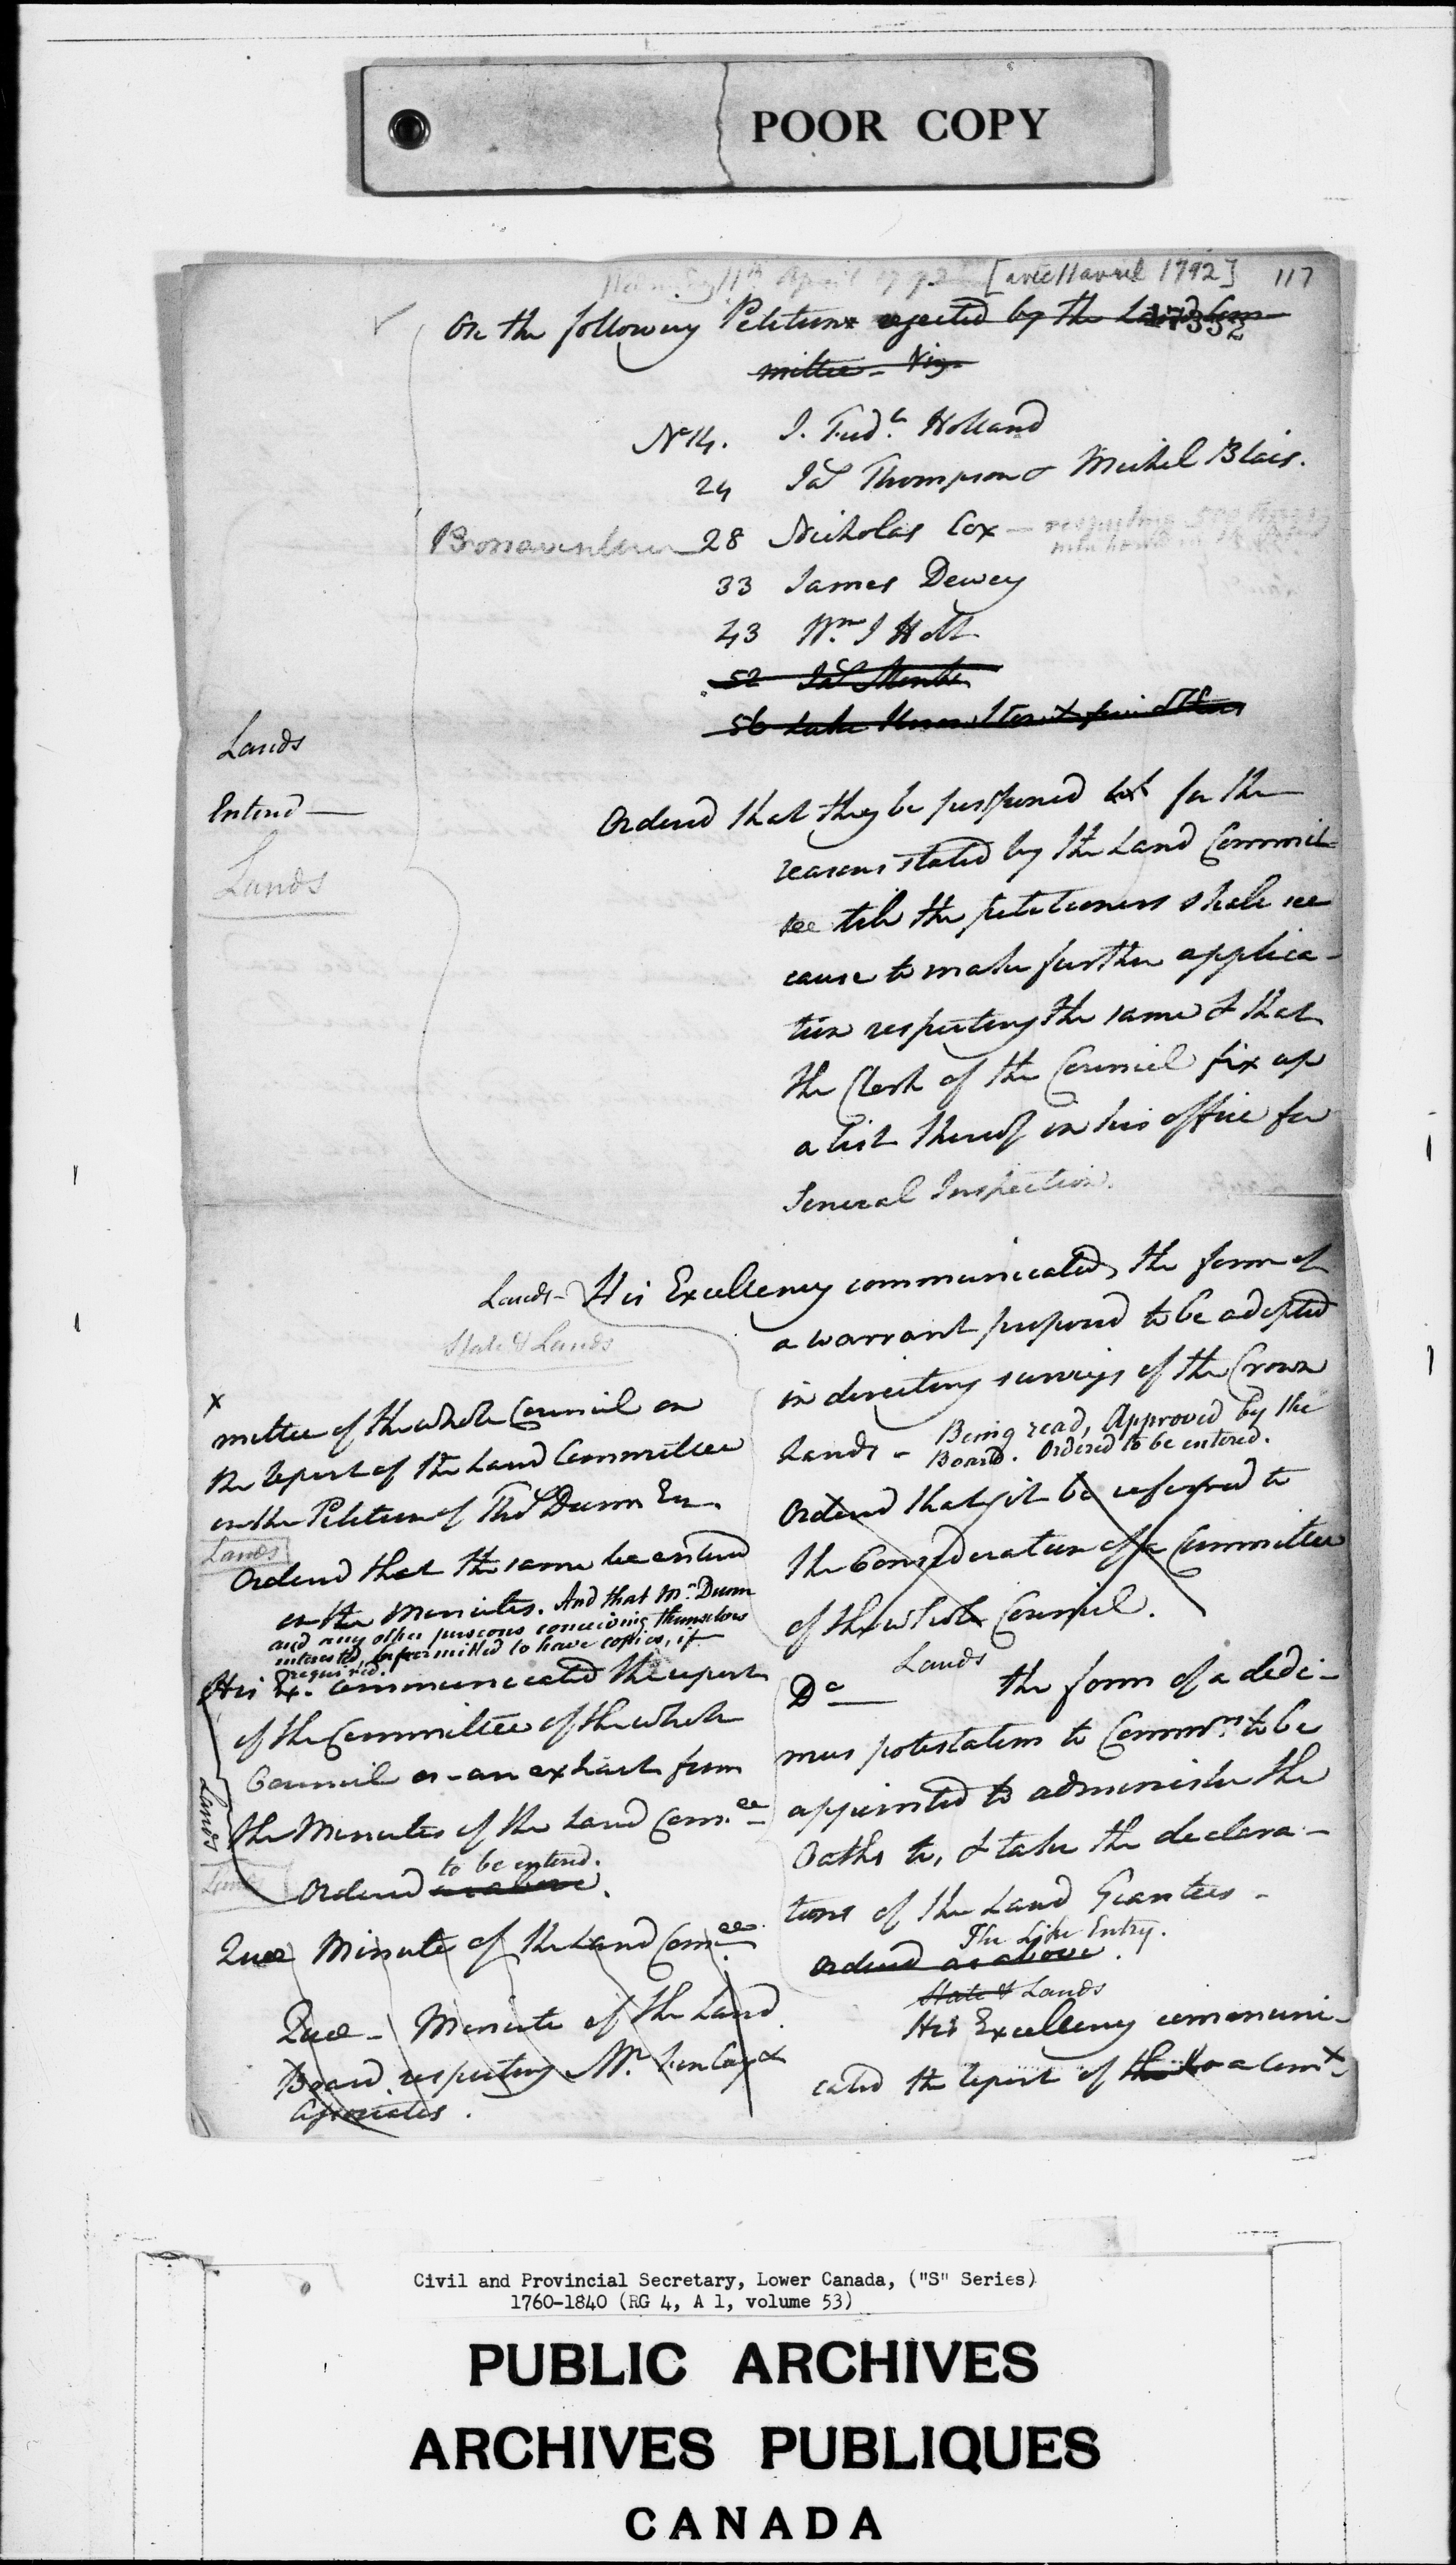 POOR COPY
April 1792 [avec 11 avril 1792] 117
On the following Petitions rejected by the Land Com-
17332
mittee - Viz.
No 14. J. Fred.k Holland
24 Jas Thompson & Michel Blais.
Bonaventure 28 Nicholas Cox - respecting
33 James Dewey
43 Wm. J Holt
52 Jas
56 Luke
Lands
Entend -
Lands
Ordered that they be postponed for the
reasons stated by the Land Commit=
tee till the petitioners shall see
cause to make further applica-
tion respecting the same & that
the Clerk of the Council fix up
a list thereof in his office for
General Inspection.
Lands - His Excellency communicated, the form of
State & Lands
a warrant proposed to be adopted
in directing surveys of the Crown
Lands - Being read, Approved by the
Board. Ordered to be entered.
Ordered that it be referred to
the Consideration of a Committee
of the whole Council.
Lands
Do the form of a dedi-
mus potestatem to Commrs. to be
appointed to administer the
Oaths to, & take the declara-
tions of the Land Grantees -
The Like Entry.
Ordered as above.
State & Lands
His Excellency communi-
cated the report of a Comx
x
mittee of the whole Council on
the report of the Land Committee
on the Petition of Thos Dunn Esr.
Lands
Ordered that the same be entered
on the Minutes. And that Mr. Dunn
and any other persons conceiving themselves
interested, be permitted to have copies, if
required.
His Ex. communicated the report
of the Committee of the whole
Council on an extract from
Lands
the Minutes of the Land Com.ee
to be entered.
Lands
Ordered as above.
Quee Minute of the Land Com.ee
Quee - Minute of the Land
Board respecting Mr. Finlay &
Associates.
Civil and Provincial Secretary, Lower Canada, ("S" Series)
1760-1840 (RG 4, A 1, volume 53)
PUBLIC ARCHIVES
ARCHIVES PUBLIQUES
CANADA